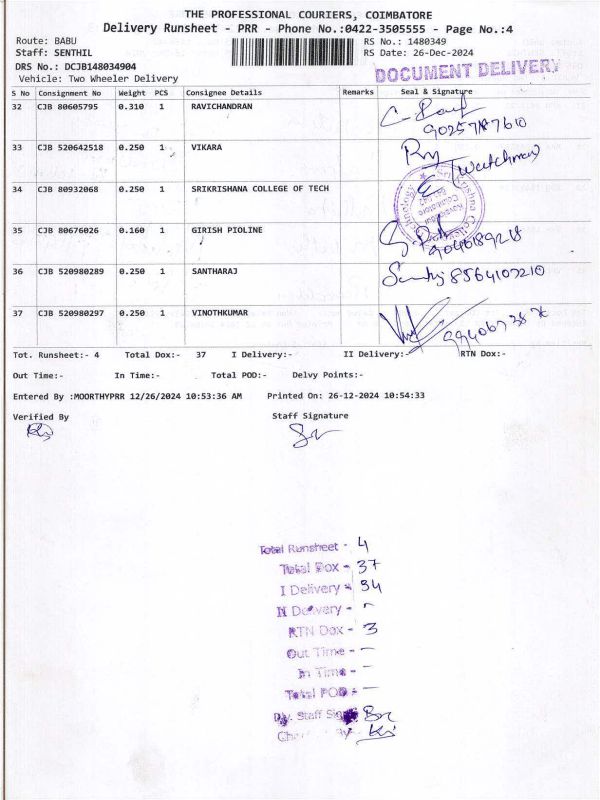 THE PROFESSIONAL COURIERS, COIMBATORE
Delivery Runsheet - PRR - Phone No.:0422-3505555 - Page No.:4
Route: BABU RS No.: 1480349
Staff: SENTHIL RS Date: 26-Dec-2024
DRS No.: DCJB148034904
DOCUMENT DELIVERY
Vehicle: Two Wheeler Delivery
S No Consignment No Weight PCS Consignee Details Remarks Seal & Signature
32 CJB 80605795 0.310 1 RAVICHANDRAN
9025787610
33 CJB 520642518 0.250 1 VIKARA
(Watchman)
34 CJB 80932068 0.250 1 SRIKRISHANA COLLEGE OF TECH
Sri Krishna College Technology
Kovaipudur
Coimbatore
35 CJB 80676026 0.160 1 GIRISH PIOLINE
36 CJB 520980289 0.250 1 SANTHARAJ
8564107210
37 CJB 520980297 0.250 1 VINOTHKUMAR
Tot. Runsheet:- 4 Total Dox:- 37 I Delivery:- II Delivery:- RTN Dox:-
Out Time:- In Time:- Total POD:- Delvy Points:-
Entered By :MOORTHYPRR 12/26/2024 10:53:36 AM Printed On: 26-12-2024 10:54:33
Verified By Staff Signature
Total Runsheet - 4
Total Dox - 37
I Delivery - 34
II Delivery -
RTN Dox - 3
Out Time - -
In Time - -
Total POD - -
Dly. Staff Sign
By